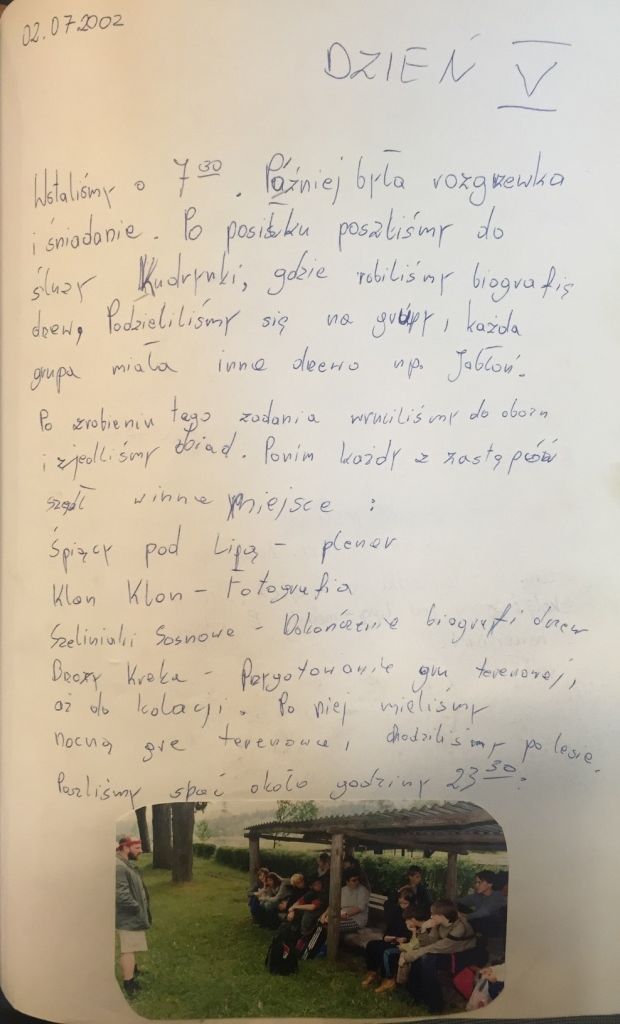 02.07.2002
DZIEŃ V
Wstaliśmy o 7 30. Później była rozgrzewka
i śniadanie. Po posiłku poszliśmy do
śluzy Kudrynki, gdzie robiliśmy biografię
drzew. Podzieliliśmy się na grupy, każda
grupa miała inne drzewo np. Jabłoń.
Po zrobieniu tego zadania wruciliśmy do obozu
i zjedliśmy obiad. Ponim każdy z zastępów
szedł winne miejsce :
Śpiący pod Lipą - plener
Klan Klon - Fotografia
Szeliniaki Sosnowe - Dokończenie biografi drzew
Kreka - Przygotowanie gry terenowej,
aż do kolacji. Po niej mieliśmy
nocną gre terenowa, chodziliśmy po lesie.
Poszliśmy spać około godziny 23 30.